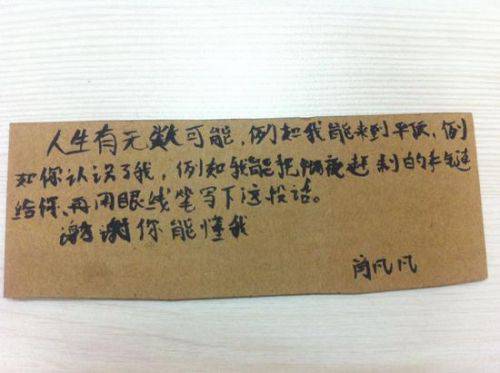 人生有无数可能，例如我能来到平，例
如你认识了我，例如我能把赶制的手送
给你、再用眼线笔写下这段话。
谢谢你能懂我
凡凡